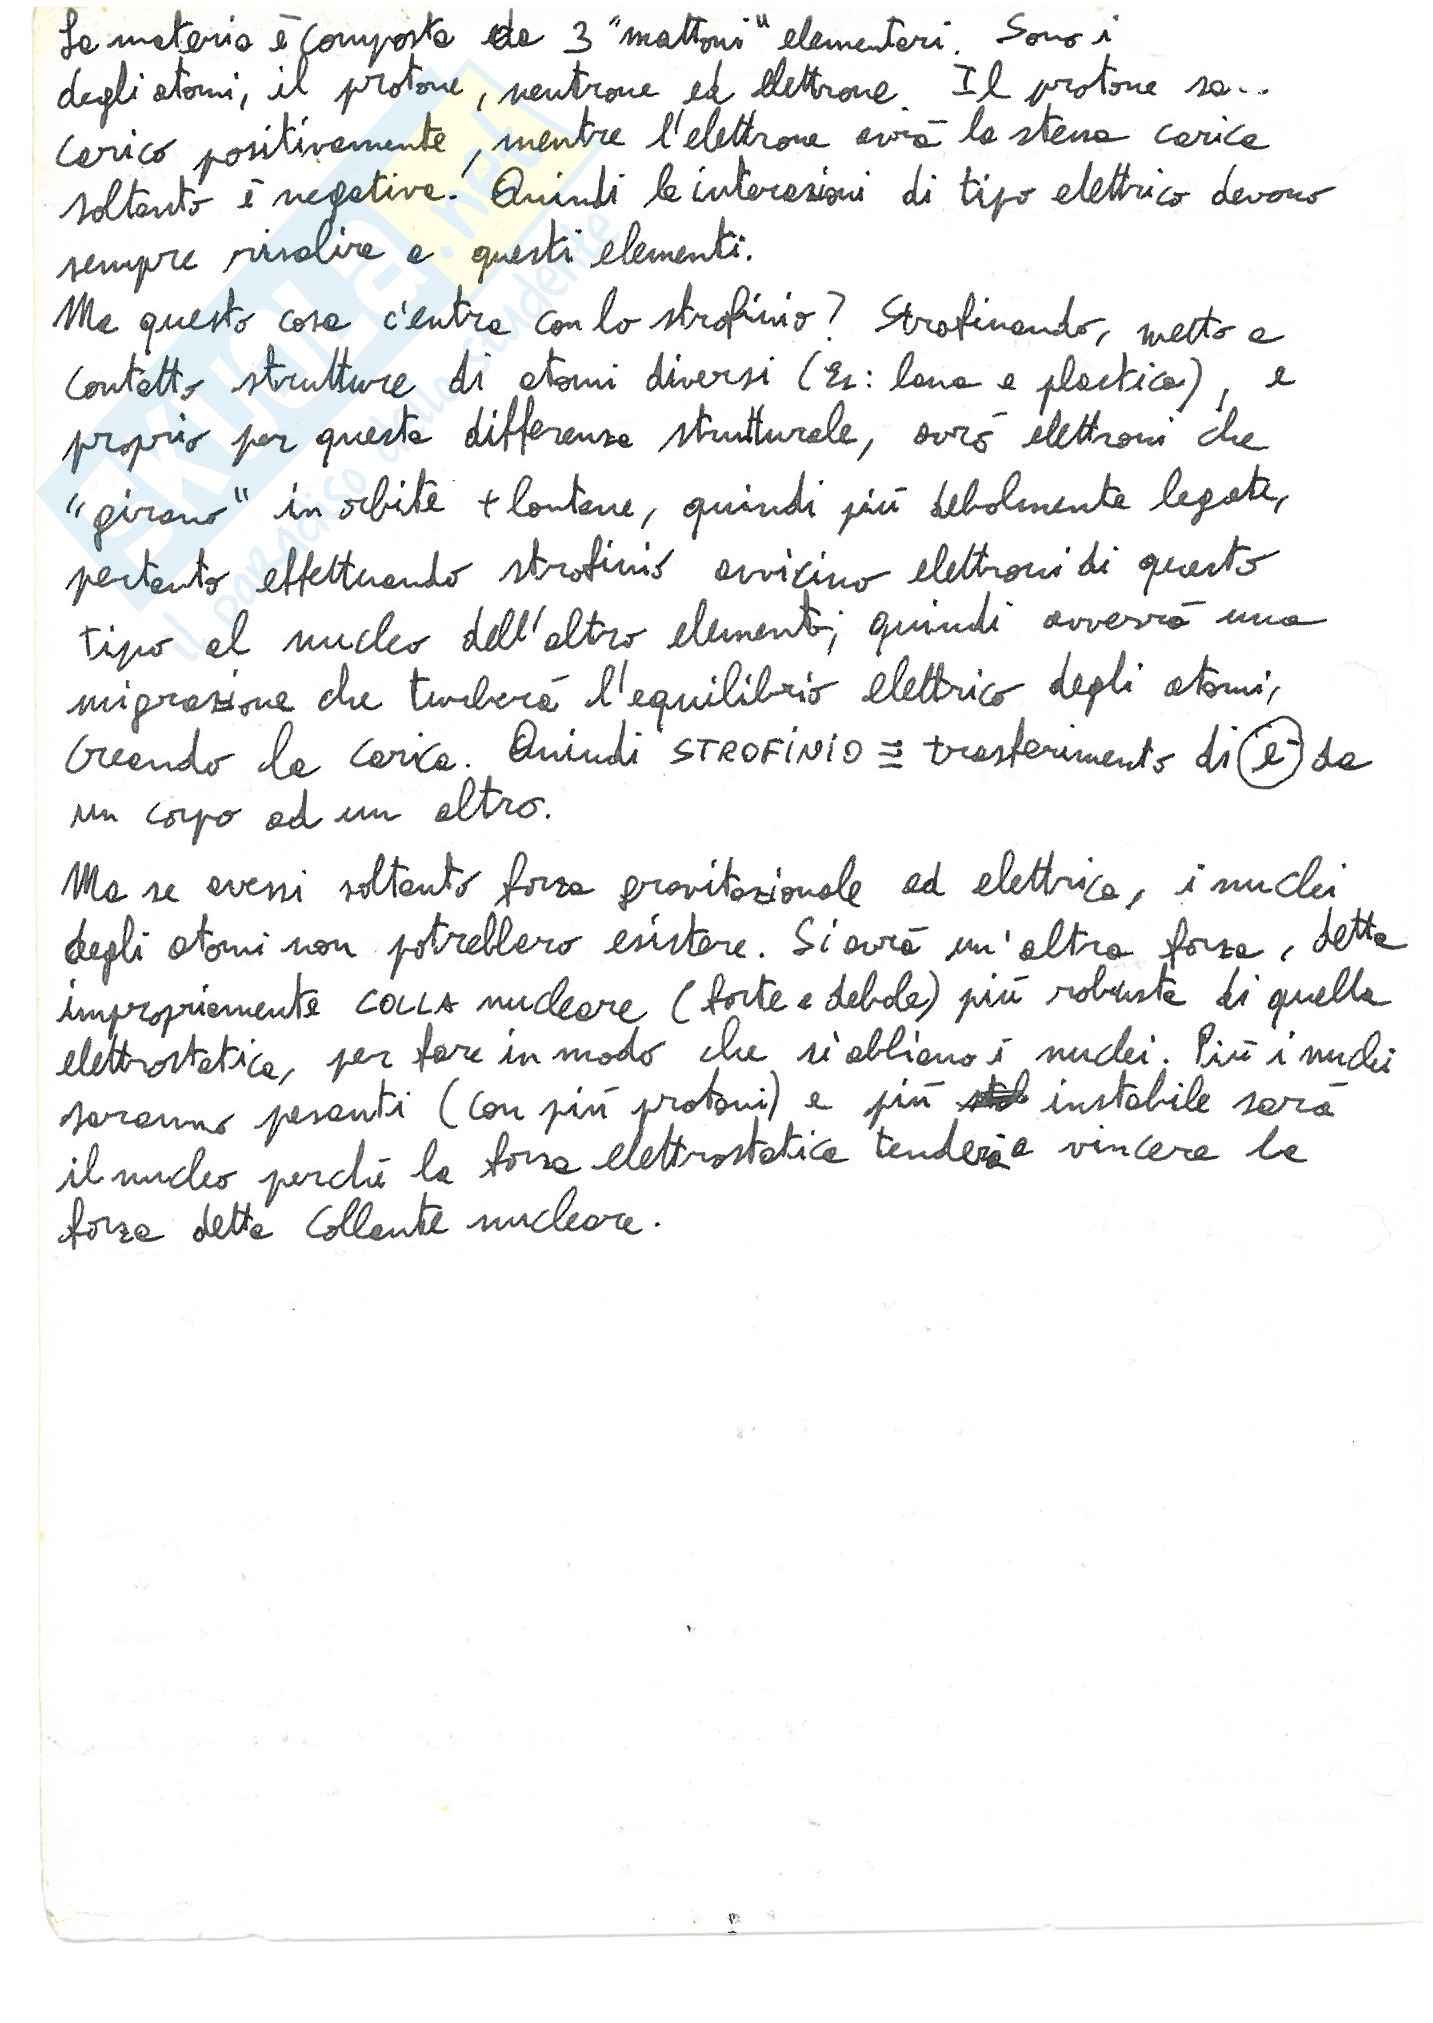 La materia è composta da 3 "mattoni" elementari. Sono i
degli atomi, il protone, neutrone ed elettrone. Il protone sa..
carico positivamente, mentre l'elettrone avrà la stessa carica
soltanto è negativa. Quindi le interazioni di tipo elettrico devono
sempre risalire a questi elementi.
Ma questo cosa c'entra con lo strofinio? Strofinando, metto a
contatto strutture di atomi diversi (Es: lana e plastica), e
proprio per questa differenza strutturale, avrò elettroni che
"girano" in orbite + lontane, quindi più debolmente legate,
pertanto effettuando strofinio avvicino elettroni di questo
tipo al nucleo dell'altro elemento; quindi avverrà una
migrazione che turberà l'equilibrio elettrico degli atomi,
creando la carica. Quindi STROFINIO ≡ trasferimento di e⁻ da
un corpo ad un altro.
Ma se avessi soltanto forza gravitazionale ed elettrica, i nuclei
degli atomi non potrebbero esistere. Si avrà un'altra forza, detta
impropriamente COLLA nucleare (forte e debole) più robusta di quella
elettrostatica, per fare in modo che si abbiano i nuclei. Più i nuclei
saranno pesanti (con più protoni) e più instabile sarà
il nucleo perché la forza elettrostatica tenderà a vincere la
forza detta collante nucleare.
il paradiso dello studente